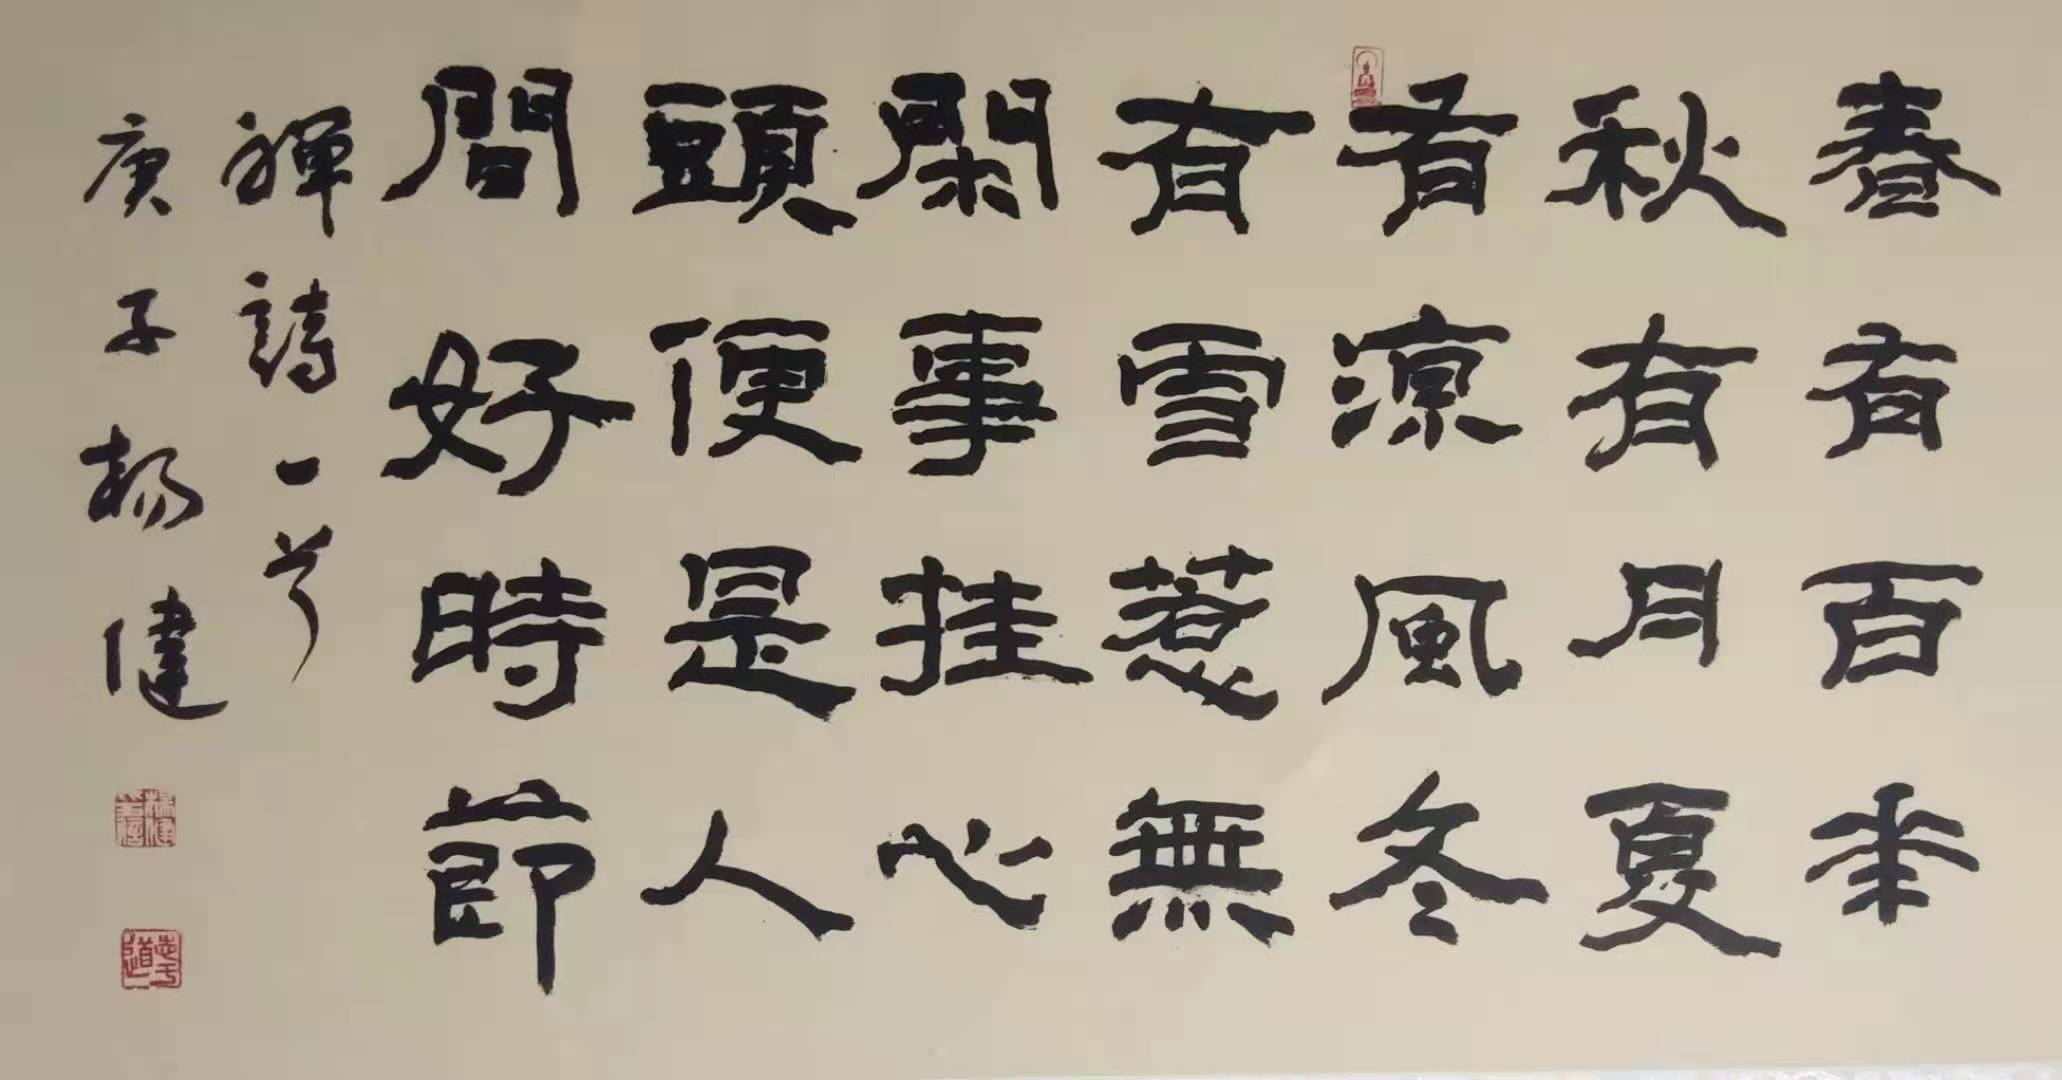 春有百華
秋有月夏
有涼風冬
有雪惹無
閑事挂心
頭便是人
間好時節
禪詩一首
庚子楊健
志于道